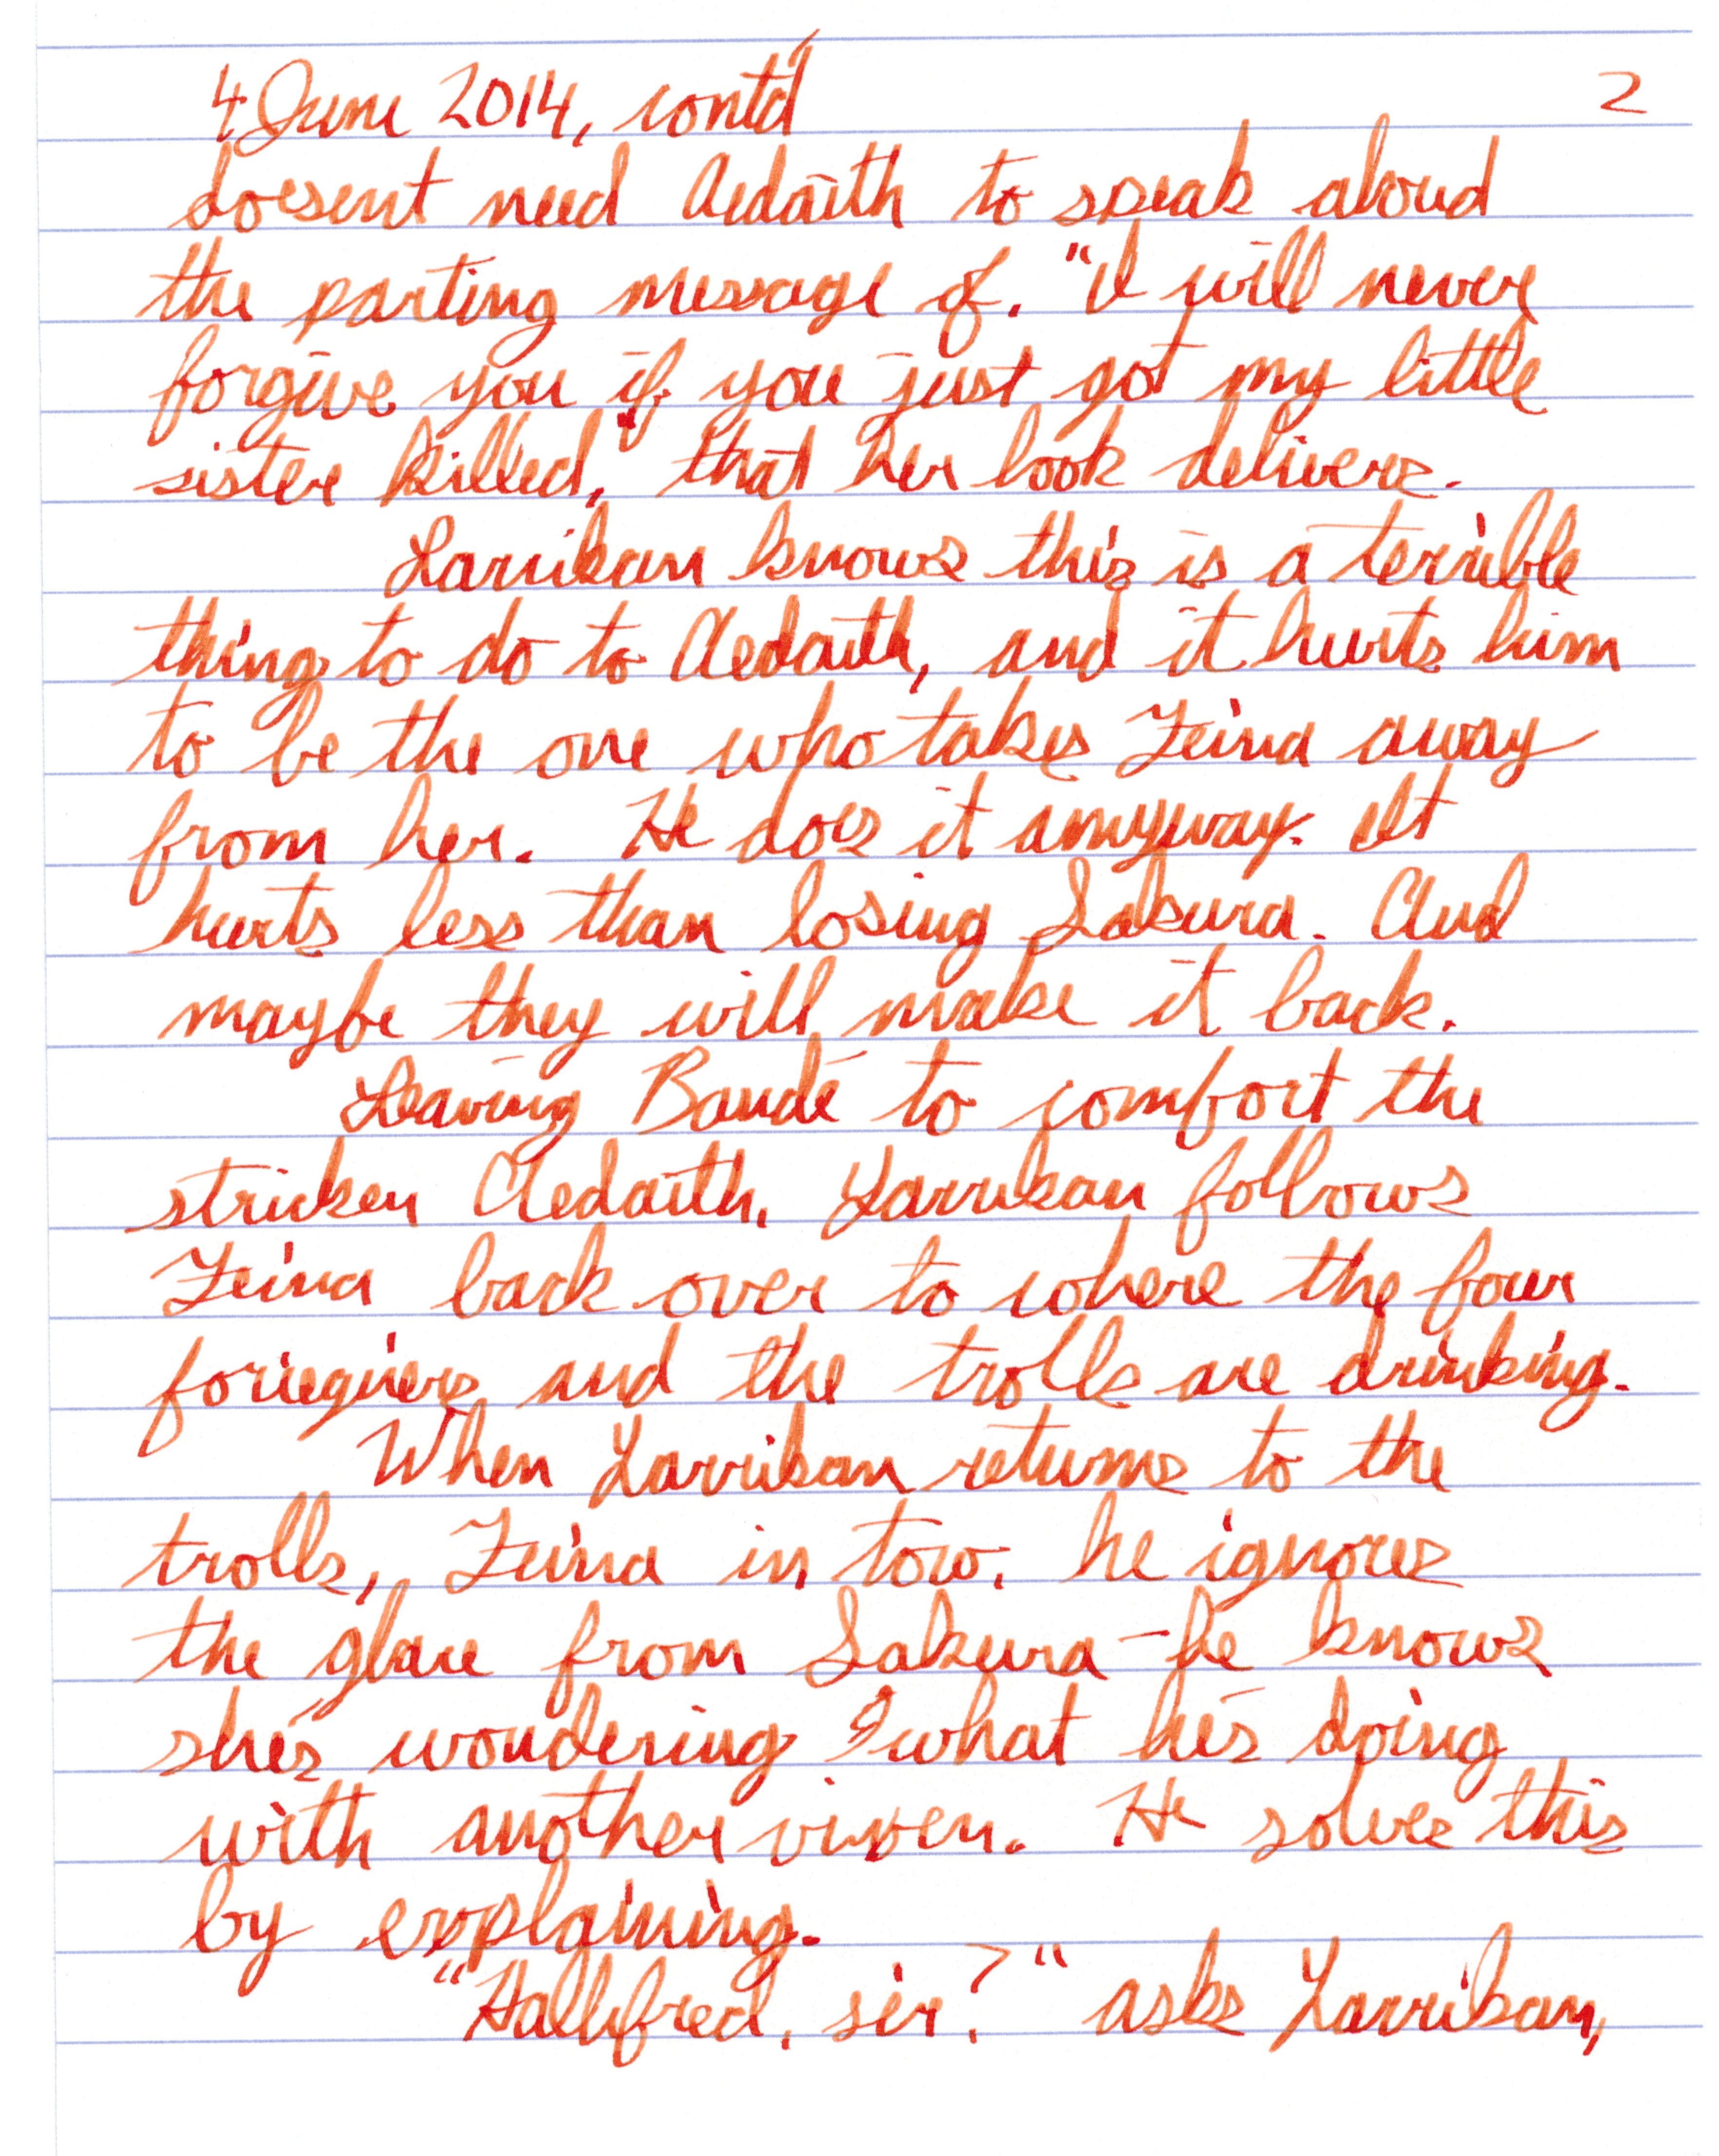 4 June 2014, cont'd 2
doesent need Aedaith to speak aloud
the parting message of, "I will never
forgive you if you just got my little
sister killed," that her look delivers.
Larrikan knows this is a terrible
thing to do to Aedaith, and it hurts him
to be the one who takes Zeina away
from her. He does it anyway. It
hurts less than losing Sakura. And
maybe they will make it back.
Leaving Baudé to comfort the
stricken Aedaith, Larrikan follows
Zeina back over to where the four
foriegners and the trolls are drinking.
When Larrikan returns to the
trolls, Zeina in tow, he ignores
the glare from Sakura - he knows
she's wondering what he's doing
with another viven. He solves this
by explaining.
"Hallifred, sir?" asks Larrikan,